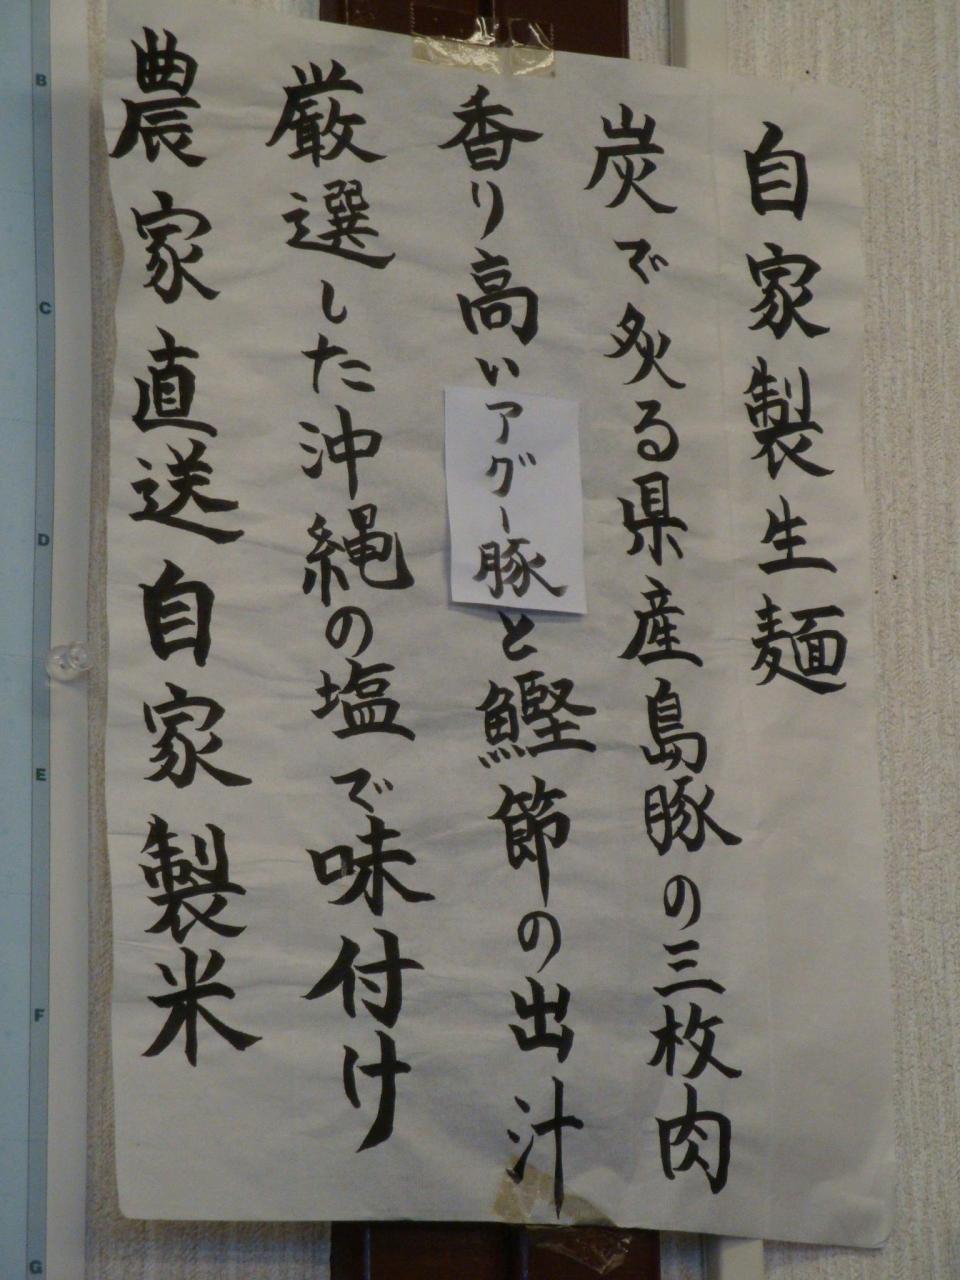 自家製生麺
炭で炙る県産島豚の三枚肉
香り高いアグー豚と鰹節の出汁
厳選した沖縄の塩で味付け
農家直送自家製米
B
C
D
E
F
G